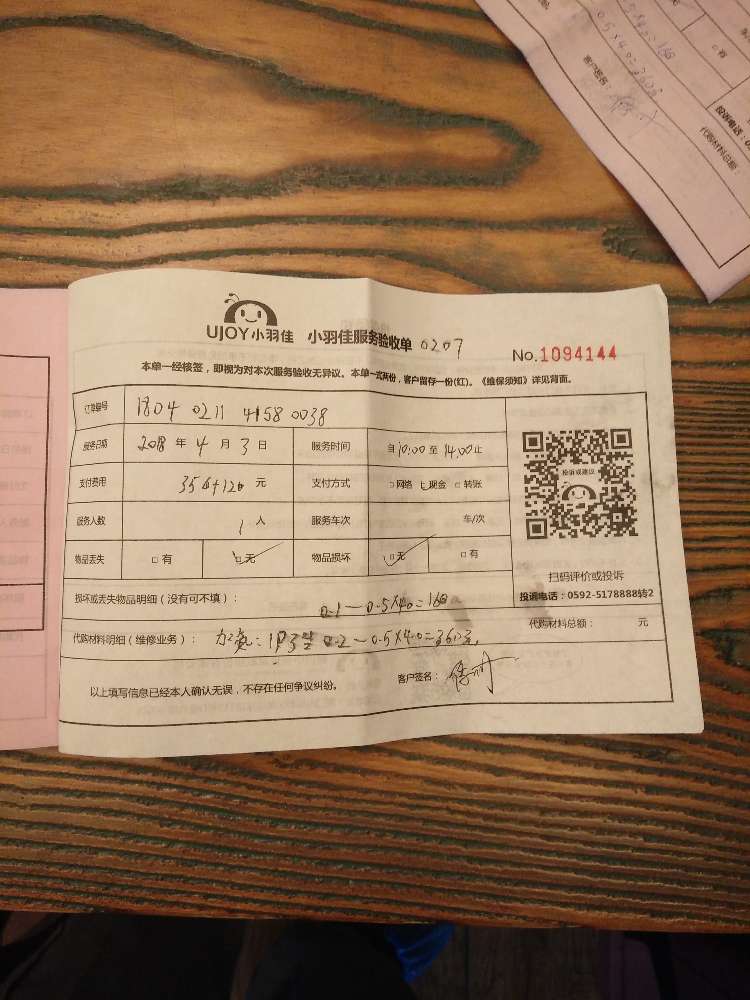 UJOY小羽佳 小羽佳服务验收单 0207
No.1094144
本单一经核签，即视为对本次服务验收无异议。本单一式两份，客户留存一份(红)。《维保须知》详见背面。
订单编号 1804 0211 4158 0038
服务日期 2018 年 4 月 3 日 服务时间 自 10:00 至 14:00 止
支付费用 元 支付方式 □网络 □现金 □转账
服务人数 1 人 服务车次 车/次
物品丢失 □有 □无 物品损坏 □无 □有
投诉或建议
扫码评价或投诉
投诉电话：0592-5178888转2
损坏或丢失物品明细（没有可不填）：
0.1-0.5×40=160
代购材料明细（维修业务）： 0.2-0.5×40=360 代购材料总额： 元
以上填写信息已经本人确认无误，不存在任何争议纠纷。 客户签名：
□有
客户签名：
投诉电话：0
代购材料总额：